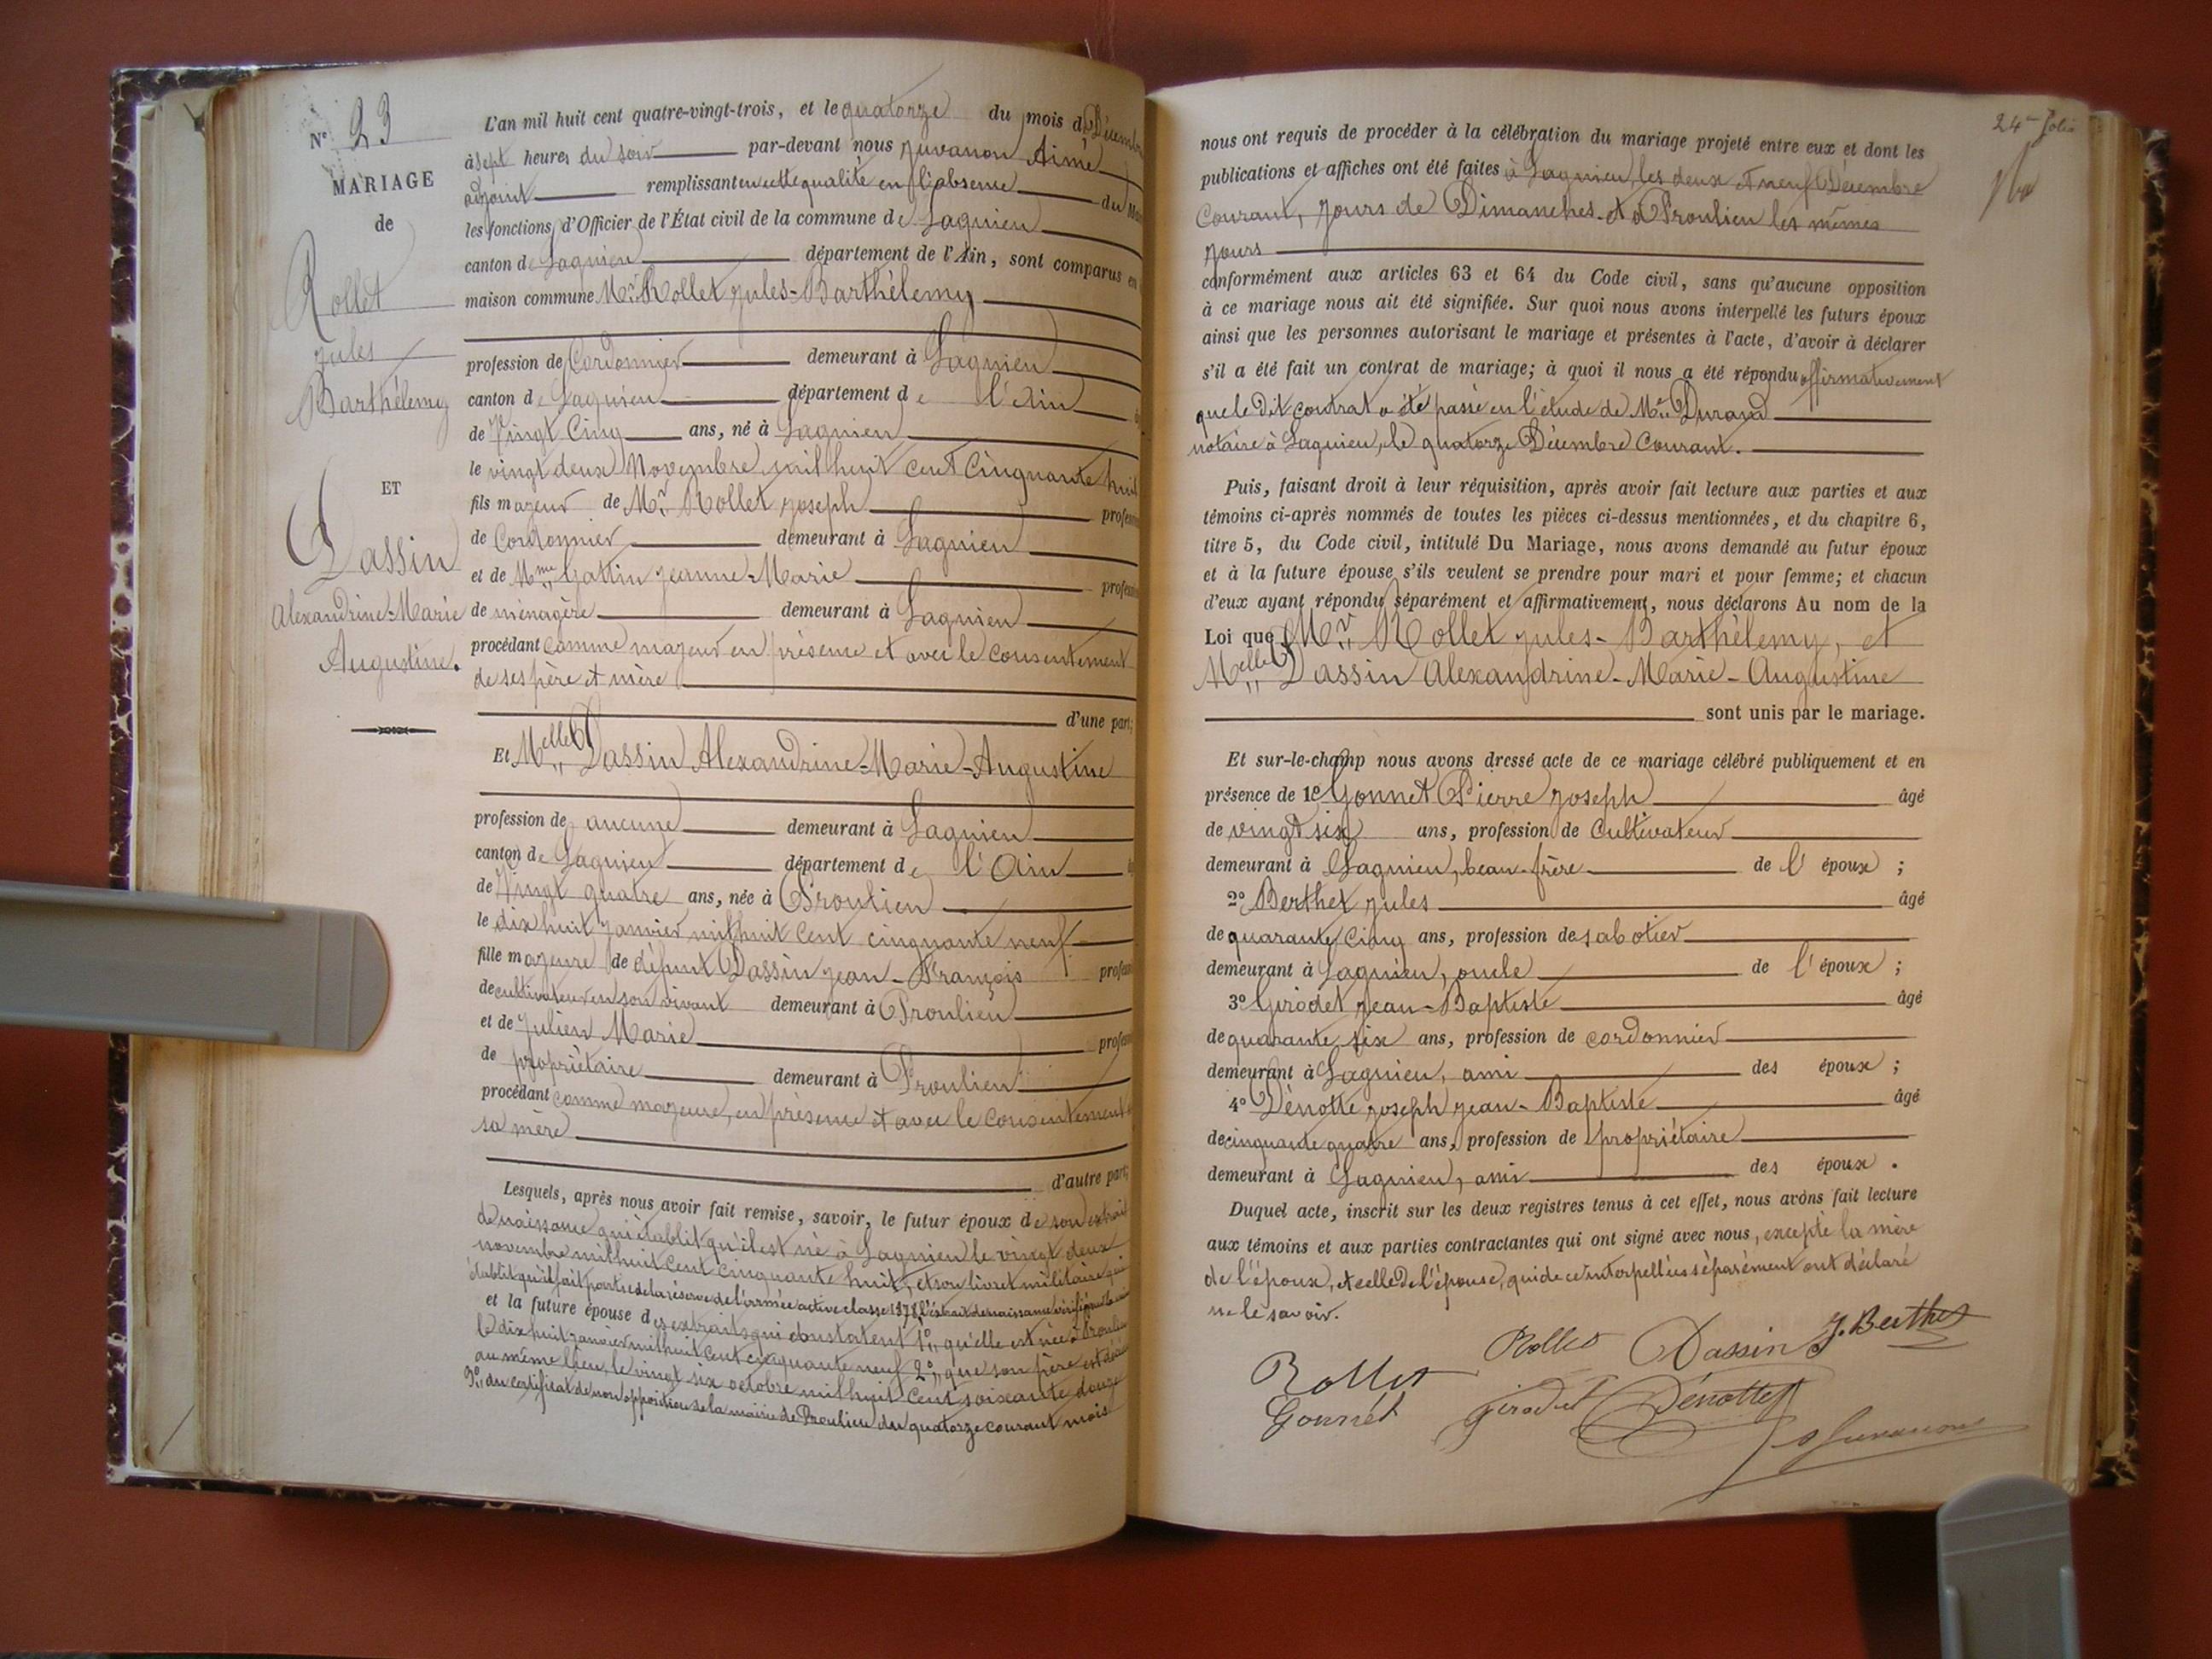 N° 23
MARIAGE
de
Rollet
Jules
Barthélemy
ET
Dassin
Alexandrine-Marie
Augustine.
L'an mil huit cent quatre-vingt-trois, et le quatorze du mois de Décembre
à sept heures du soir par-devant nous Juvanon Aimé
adjoint remplissant en cette qualité en l'absence du Maire
les fonctions d'Officier de l'État civil de la commune de Lagnieu
canton de Lagnieu département de l'Ain, sont comparus en
maison commune Mr. Rollet Jules-Barthélemy
profession de Cordonnier demeurant à Lagnieu
canton de Lagnieu département de l'Ain
de Vingt Cinq ans, né à Lagnieu
le vingt deux Novembre mil huit cent Cinquante huit
fils majeur de Mr. Rollet Joseph profession
de Cordonnier demeurant à Lagnieu
et de Mme Gattin Jeanne-Marie profession
de ménagère demeurant à Lagnieu
procédant comme majeur en présence et avec le consentement
de ses père et mère
d'une part;
Et Melle Dassin Alexandrine-Marie-Augustine
profession de aucune demeurant à Lagnieu
canton de Lagnieu département de l'Ain
de Vingt quatre ans, née à Proulieu
le dix huit Janvier mil huit cent cinquante neuf
fille majeure de défunt Dassin Jean-François profession
de cultivateur en son vivant demeurant à Proulieu
et de Julien Marie profession
de propriétaire demeurant à Proulieu
procédant comme majeure, en présence et avec le consentement de
sa mère
d'autre part;
Lesquels, après nous avoir fait remise, savoir, le futur époux de son extrait
de naissance qui établit qu'il est né à Lagnieu le vingt deux
novembre mil huit cent cinquante huit, et son livret militaire qui
établit qu'il fait partie de la réserve de l'armée active classe 1878, l'extrait de naissance vérifié
et la future épouse des extraits qui constatent 1° qu'elle est née à Proulieu
le dix huit janvier mil huit cent cinquante neuf 2°, que son père est décédé
au même lieu, le vingt six octobre mil huit cent soixante douze
3° du certificat de non opposition de la mairie de Proulieu du quatorze courant mois
24me folio
nous ont requis de procéder à la célébration du mariage projeté entre eux et dont les
publications et affiches ont été faites à Lagnieu, les deux et neuf Décembre
Courant, jours de Dimanches et à Proulieu les mêmes
jours
conformément aux articles 63 et 64 du Code civil, sans qu'aucune opposition
à ce mariage nous ait été signifiée. Sur quoi nous avons interpellé les futurs époux
ainsi que les personnes autorisant le mariage et présentes à l'acte, d'avoir à déclarer
s'il a été fait un contrat de mariage; à quoi il nous a été répondu affirmativement
que le dit contrat a été passé en l'étude de Me Durand
notaire à Lagnieu, le quatorze Décembre Courant.
Puis, faisant droit à leur réquisition, après avoir fait lecture aux parties et aux
témoins ci-après nommés de toutes les pièces ci-dessus mentionnées, et du chapitre 6,
titre 5, du Code civil, intitulé Du Mariage, nous avons demandé au futur époux
et à la future épouse s'ils veulent se prendre pour mari et pour femme; et chacun
d'eux ayant répondu séparément et affirmativement, nous déclarons Au nom de la
Loi que Mr. Rollet Jules-Barthélemy, et
Melle Dassin Alexandrine-Marie-Augustine
sont unis par le mariage.
Et sur-le-champ nous avons dressé acte de ce mariage célébré publiquement et en
présence de 1° Gonnet Pierre Joseph âgé
de vingt six ans, profession de Cultivateur
demeurant à Lagnieu, beau-frère de l'époux ;
2° Berthet Jules âgé
de quarante Cinq ans, profession de sabotier
demeurant à Lagnieu, oncle de l'époux ;
3° Girodet Jean-Baptiste âgé
de quarante six ans, profession de cordonnier
demeurant à Lagnieu, ami des époux ;
4° Dénotte Joseph Jean-Baptiste âgé
de cinquante quatre ans, profession de propriétaire
demeurant à Lagnieu, ami des époux .
Duquel acte, inscrit sur les deux registres tenus à cet effet, nous avons fait lecture
aux témoins et aux parties contractantes qui ont signé avec nous, excepté la mère
de l'époux, et celle de l'épouse, qui de ce interpellées séparément ont déclaré
ne le savoir.
Rollet Dassin J. Berthet
Rollet
Gonnet Girodet Dénotte
Juvanon